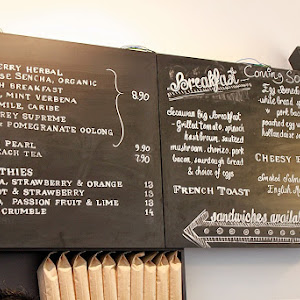 ERRY HERBAL
SE SENCHA, ORGANIC
, MINT VERBENA
MILE, CARIBE
RRY SUPREME
+ POMEGRANATE OOLONG
8.90
PEARL 9.90
EACH TEA 7.90
THIES
A, STRAWBERRY & ORANGE 13
OT & STRAWBERRY 13
A, PASSION FRUIT & LIME 13
CRUMBLE 14
Breakfast
Seawan Big Breakfast
- Grilled tomato, spinach
hashbrown, sauteed
mushroom, chorizo, pork
bacon, sourdough bread
& choice of eggs
FRENCH TOAST
Coming So
Egg Bene
white bread
+ pork ba
poached egg
hollandai
CHEESY
Smoked Salm
English M
sandwiches availa